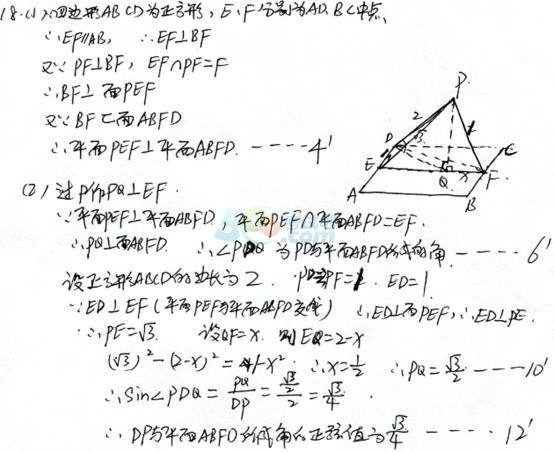 18.(1)∵四边形ABCD为正方形,E、F分别为AD、BC中点
∴EF∥AB, ∴EF⊥BF
又∵PF⊥BF, EF∩PF=F
∴BF⊥面PEF
又∵BF⊂面ABFD
∴平面PEF⊥平面ABFD. ----4'
(2)过P作PQ⊥EF.
∵平面PEF⊥平面ABFD,平面PEF∩平面ABFD=EF.
∴PQ⊥面ABFD. ∴∠PDQ为PD与平面ABFD所成的角 ----6'
设正方形ABCD的边长为2. PF=1. ED=1
∵ED⊥EF(平面PEF与平面ABFD交线) ∴ED⊥面PEF,∴ED⊥PE.
∴PE=√3. 设QF=x. 则EQ=2-x
(√3)²-(2-x)²=1-x² ∴x=1/2 ∴PQ=√3/2 ----10'
∴sin∠PDQ=PQ/DP=(√3/2)/2=√3/4.
∴DP与平面ABFD所成角的正弦值为√3/4 ----12'
P
2
√3
1
D
C
E
Q
x
F
A
B